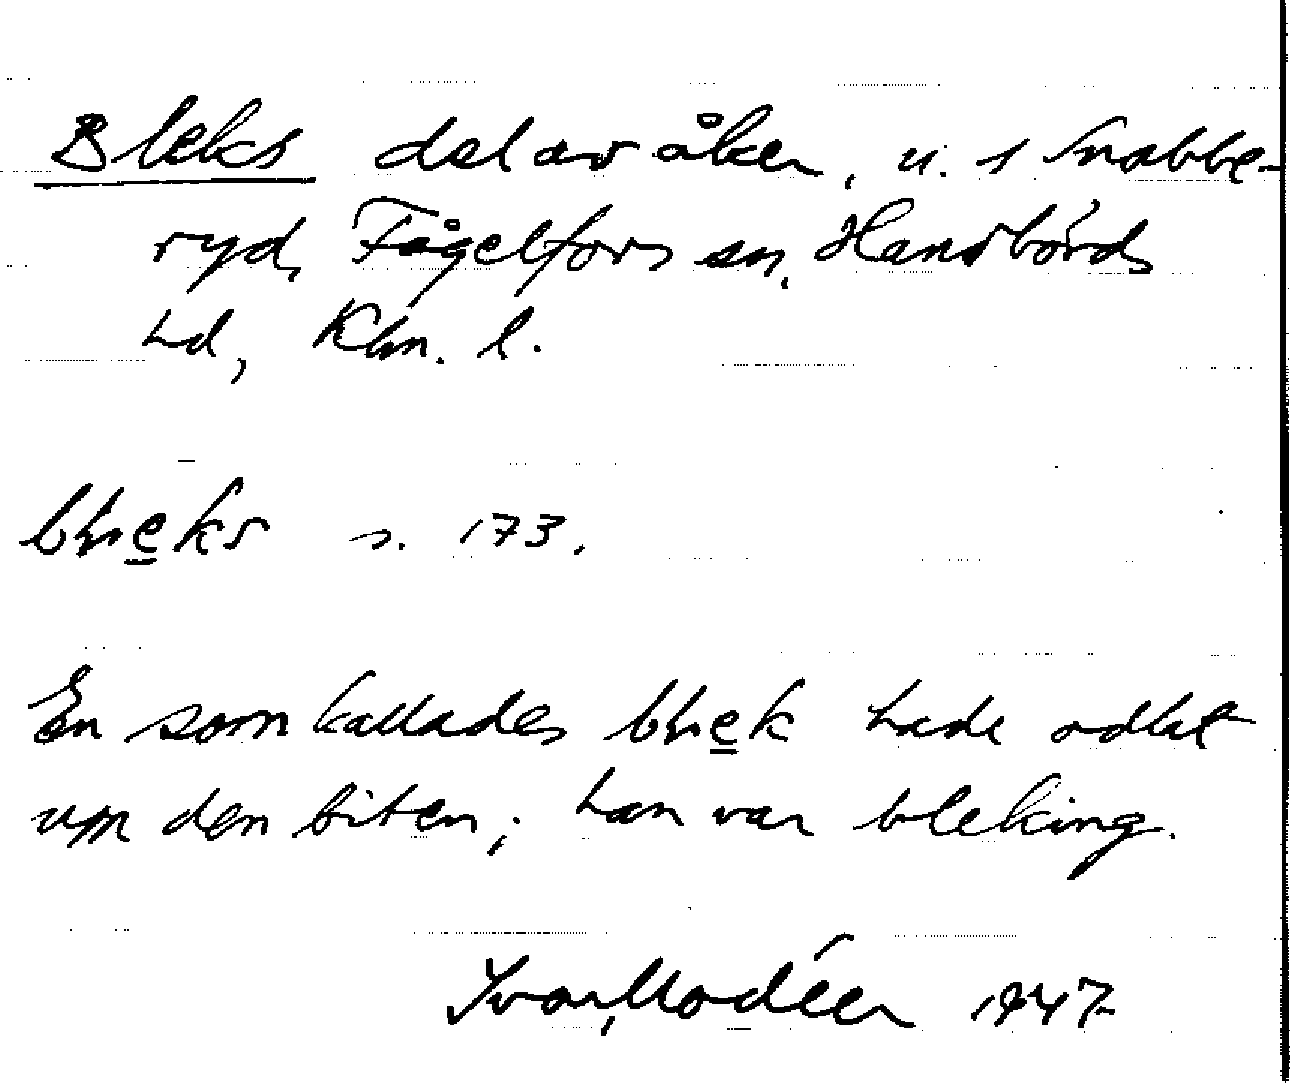 Bleks del av åker, u. 1 Snabbe-
ryd, Fågelfors sn, Handbörds
hd, Klm. l.
s. 173.
En som kallades hade odlat
upp den biten; han var bleking.
Ivar Modéer 1947